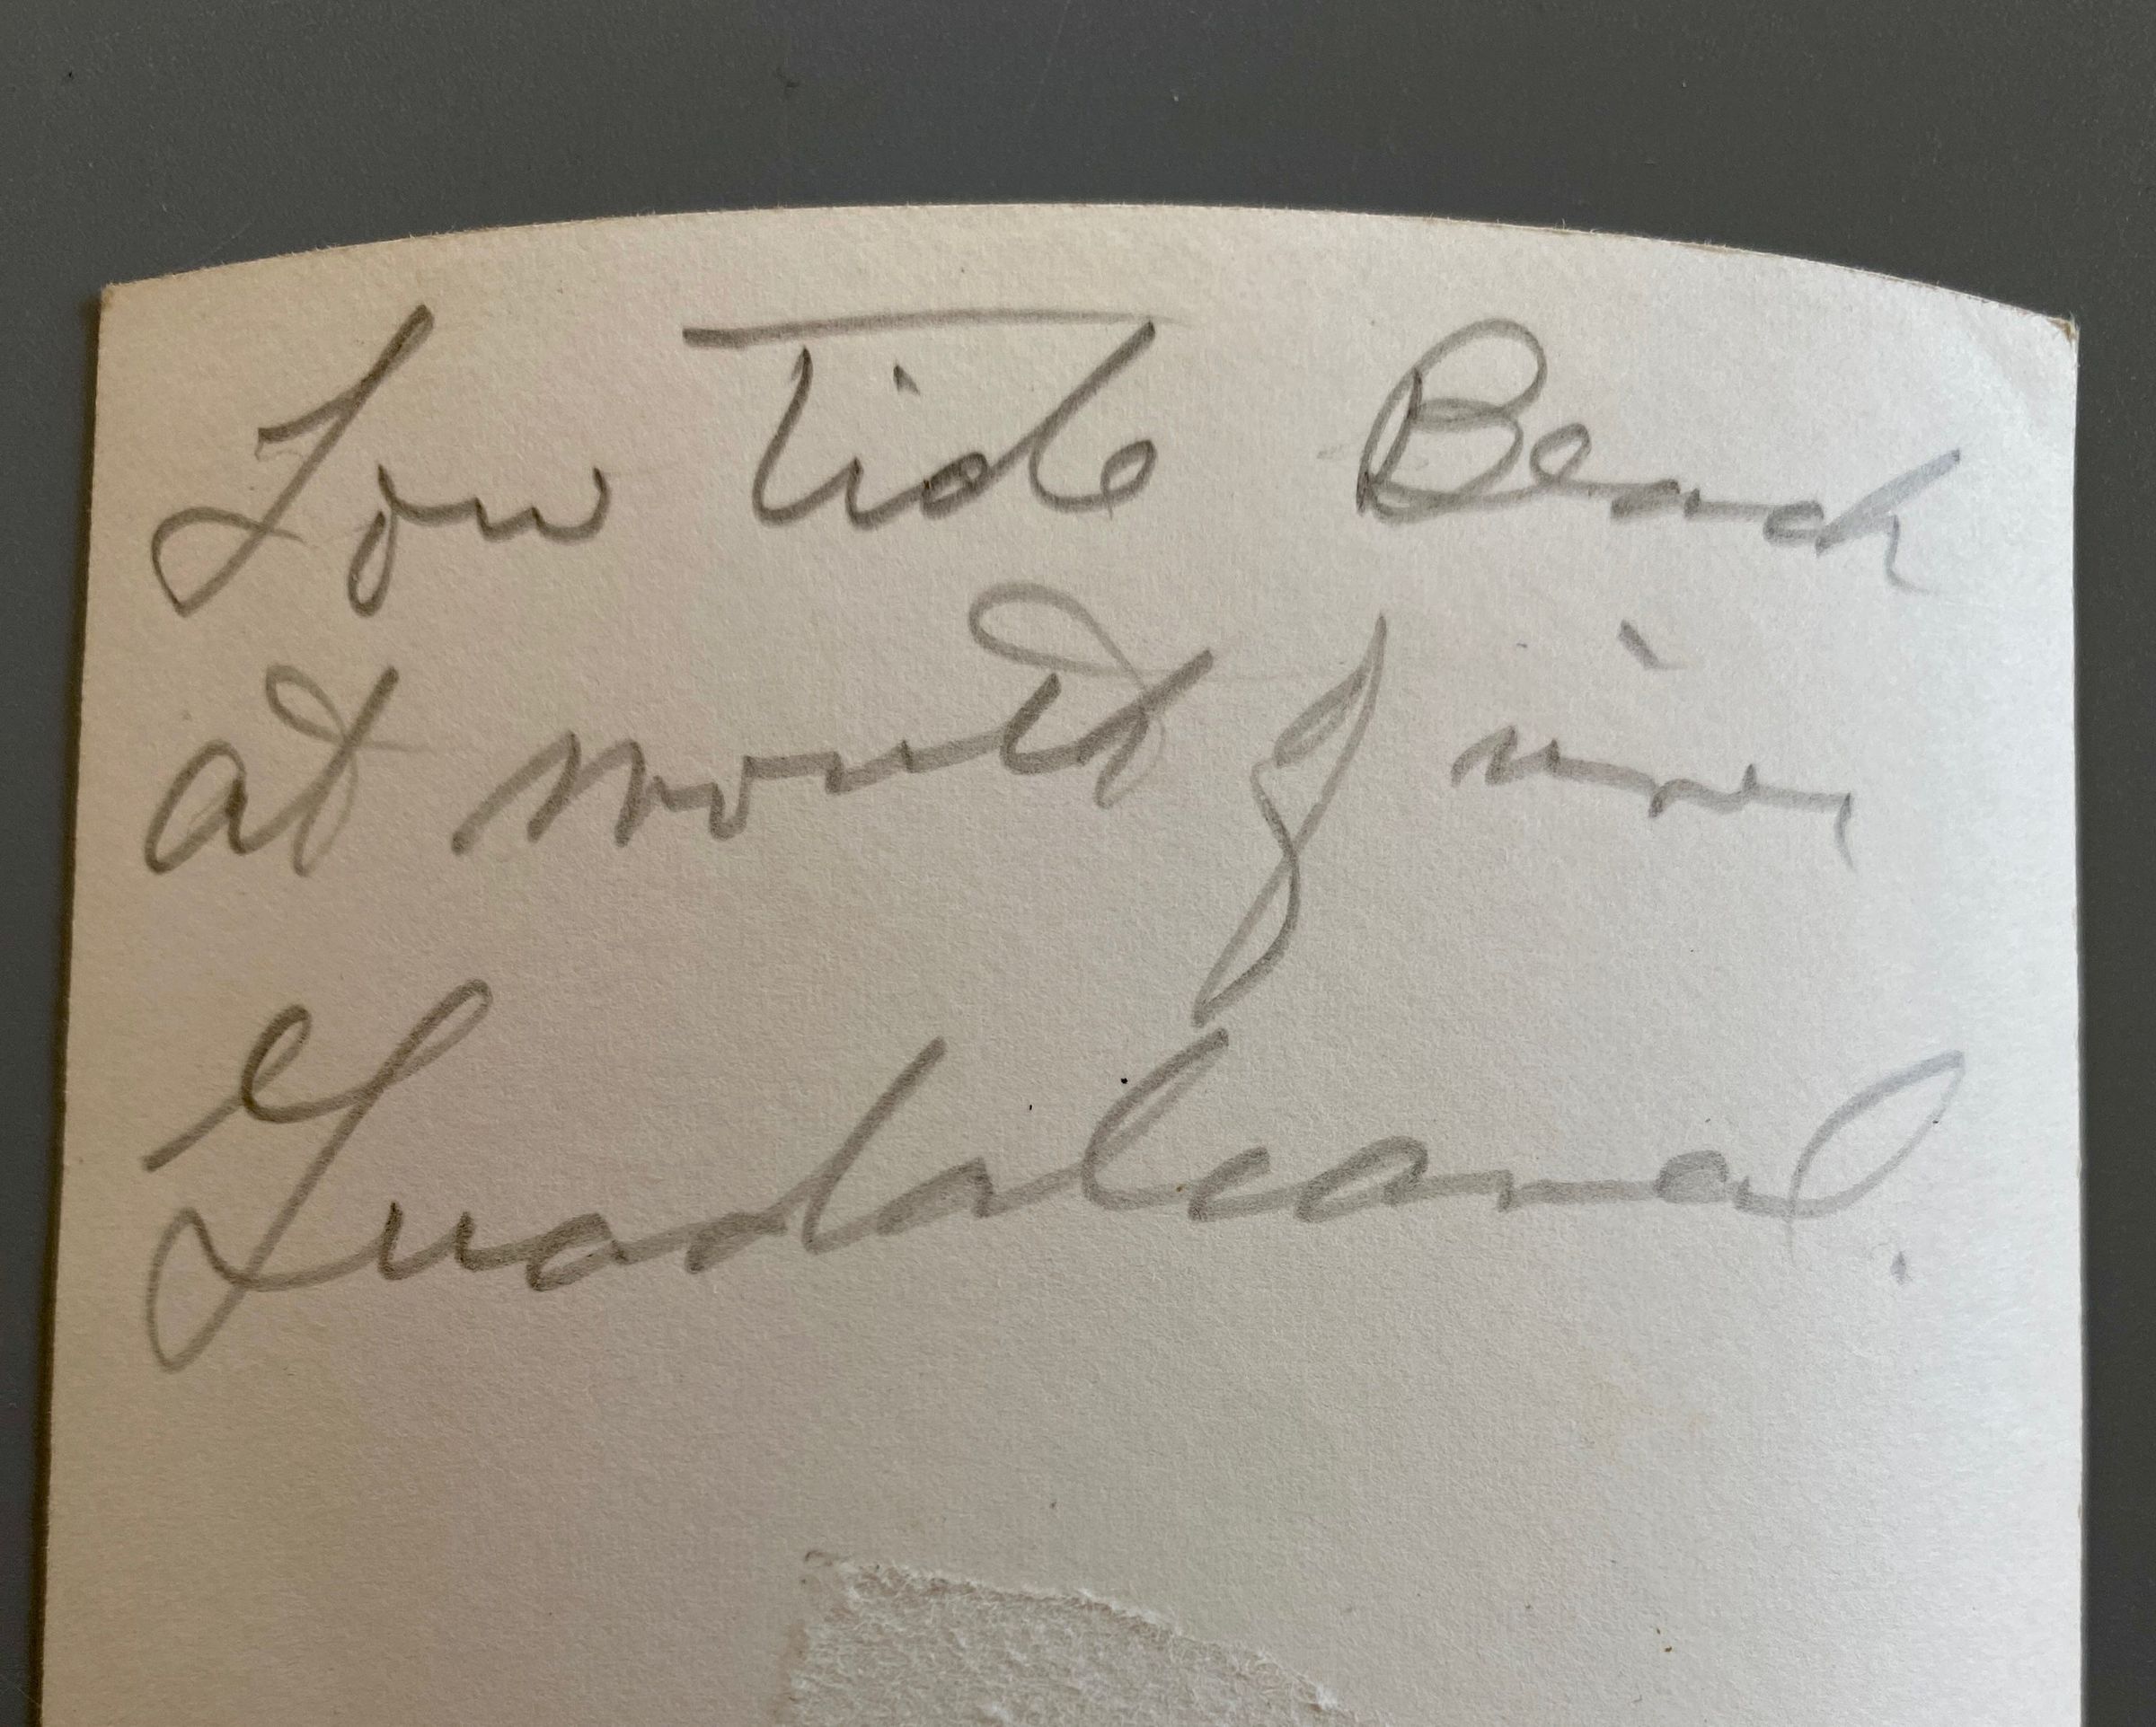 Low Tide Beach
at mouth of river
Guadalcanal.